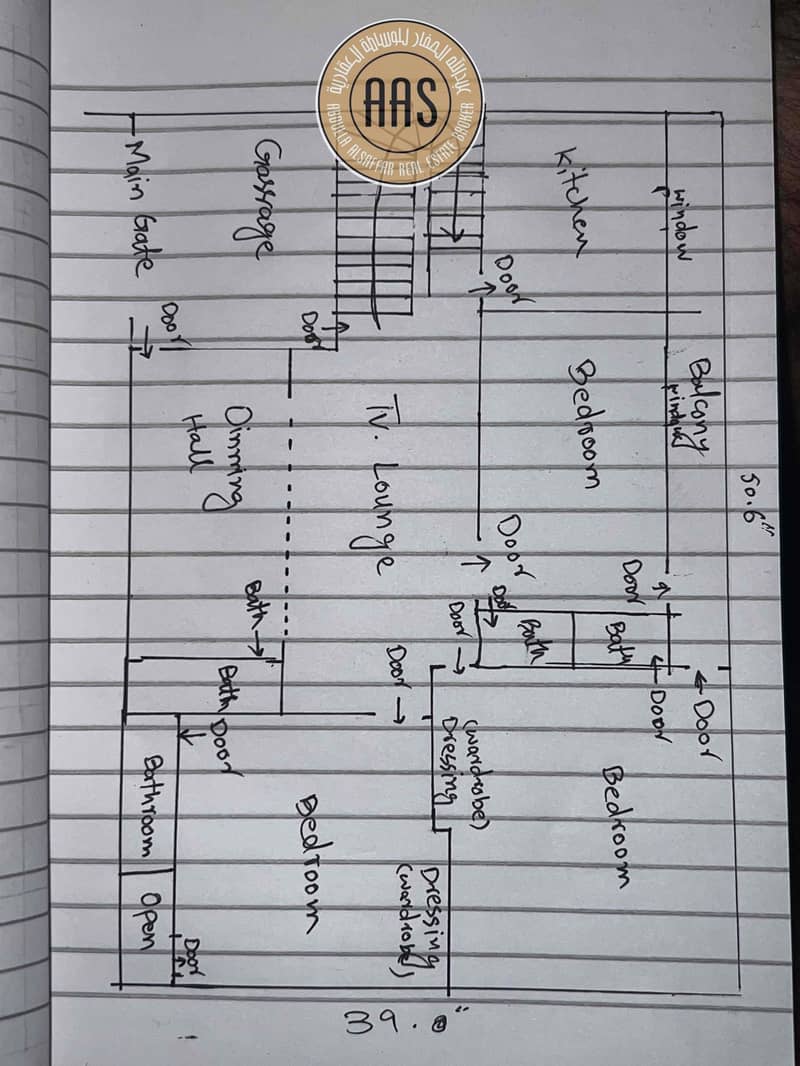 عبدالله الصفار للوساطة العقارية
AAS
ABDULLA ALSAFFAR REAL ESTATE BROKER
Main Gate
Garrage
Kitchen
window
Door
Door
Door
Balcony
window
Bedroom
Tv. Lounge
Dinning
Hall
50.6"
Door
Door
Door
Door
Bath
Bath
Bath
Bath
Door
Door
Door
Door
Bathroom
Open
Door
Bedroom
Dressing
(wardrobe)
Dressing
(wardrobe)
Bedroom
39.0"